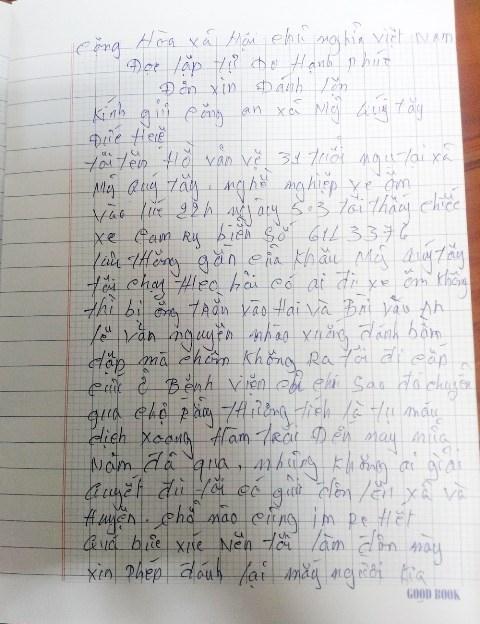 Cộng Hòa xã Hội chủ nghĩa việt Nam
Độc lập tự Do Hạnh phúc
Đơn xin Đánh lộn
Kính gửi công an xã Mỹ Quý tây
Đức Huệ
tôi tên Hồ văn vẽ 31 tuổi ngụ tại xã
Mỹ Quý tây. nghề nghiệp xe ôm
vào lúc 22h ngày 5.3 tôi thấy chiếc
xe Camry biển số 61L 3376
lưu thông gần cửa khẩu Mỹ Quý tây
tôi chạy theo hỏi có ai đi xe ôm không
thì bị ông trần vào Hai và Bùi văn
lê văn nguyên nhào xuống đánh bầm
dập mà chôm không Ra tôi đi cấp
cứu ở Bệnh viện chỉ sao đó chuyển
qua chợ Rẫy thương tích là tụ máu
dịch xoang Hàm trái Đến nay nửa
Năm đã qua, nhưng không ai giải
Quyết dù tôi có gửi đơn lên xã và
Huyện. chổ nào cũng im Re Hết
Quá bức xúc Nên tôi làm đơn này
xin phép đánh lại mấy người kia
GOOD BOOK